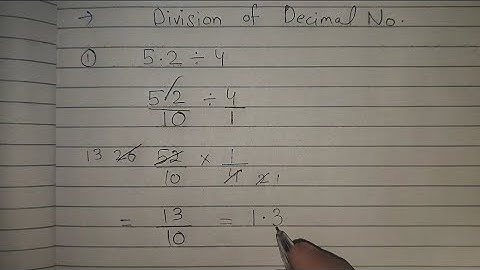 → Division of Decimal No.
① 5.2 ÷ 4
52/10 ÷ 4/1
13 26 52/10 × 1/4 2 1
= 13/10 = 1.3